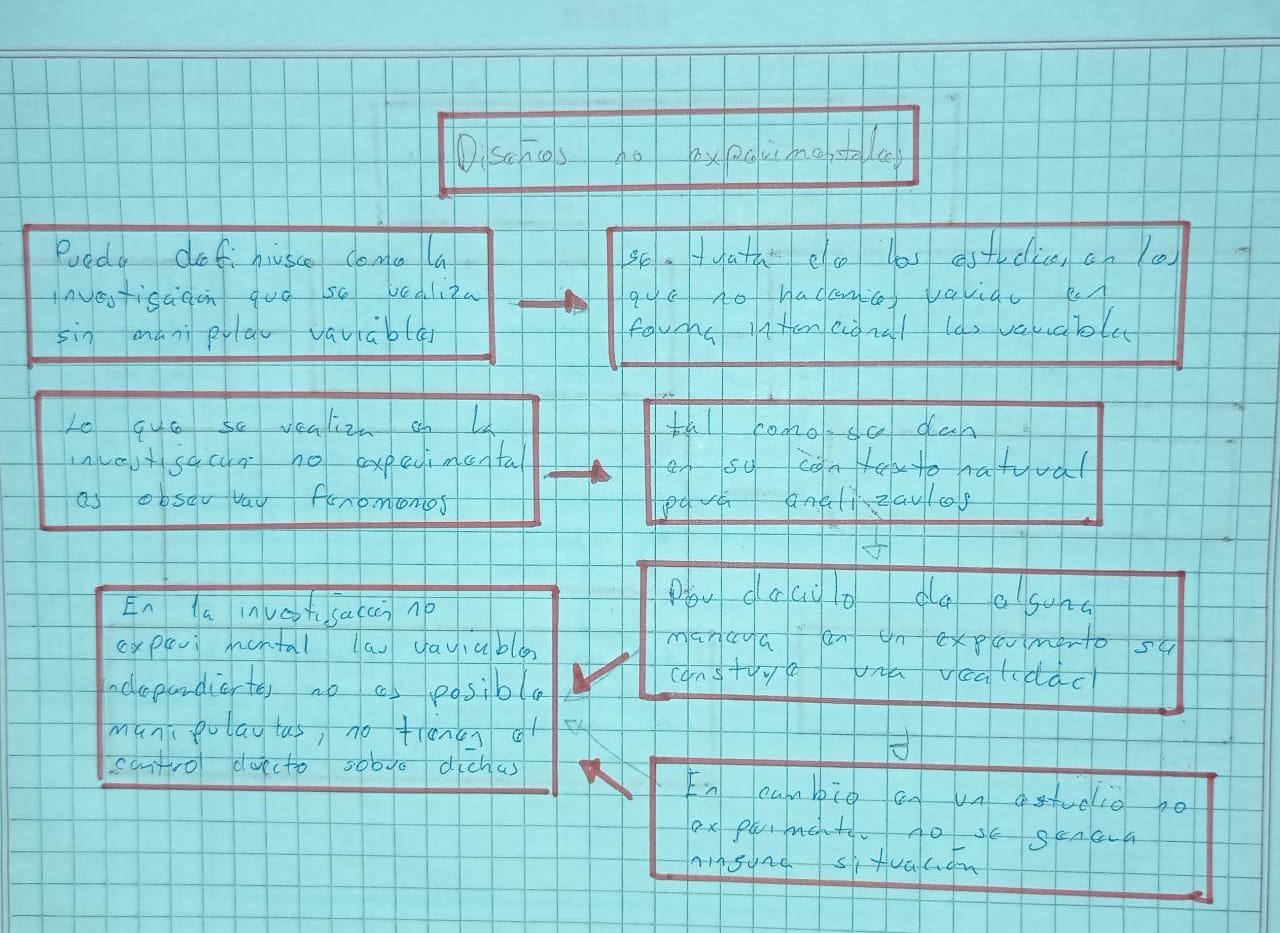 Diseños no experimentales
Puede definirse como la
investigación que se realiza
sin manipular variables
se trata de los estudios en los
que no hacemos variar en
forma intencional las variable
Lo que se realiza en la
investigación no experimental
es observar fenomenos
tal como se dan
en su contexto natural
para analizarlos
Por decirlo de alguna
manera en un experimento se
constuye una realidad
En la investigación no
experimental las variables
independientes no es posible
manipularlas, no tienen el
control directo sobre dichas
En cambio en un estudio no
experimental no se genera
ninguna situación